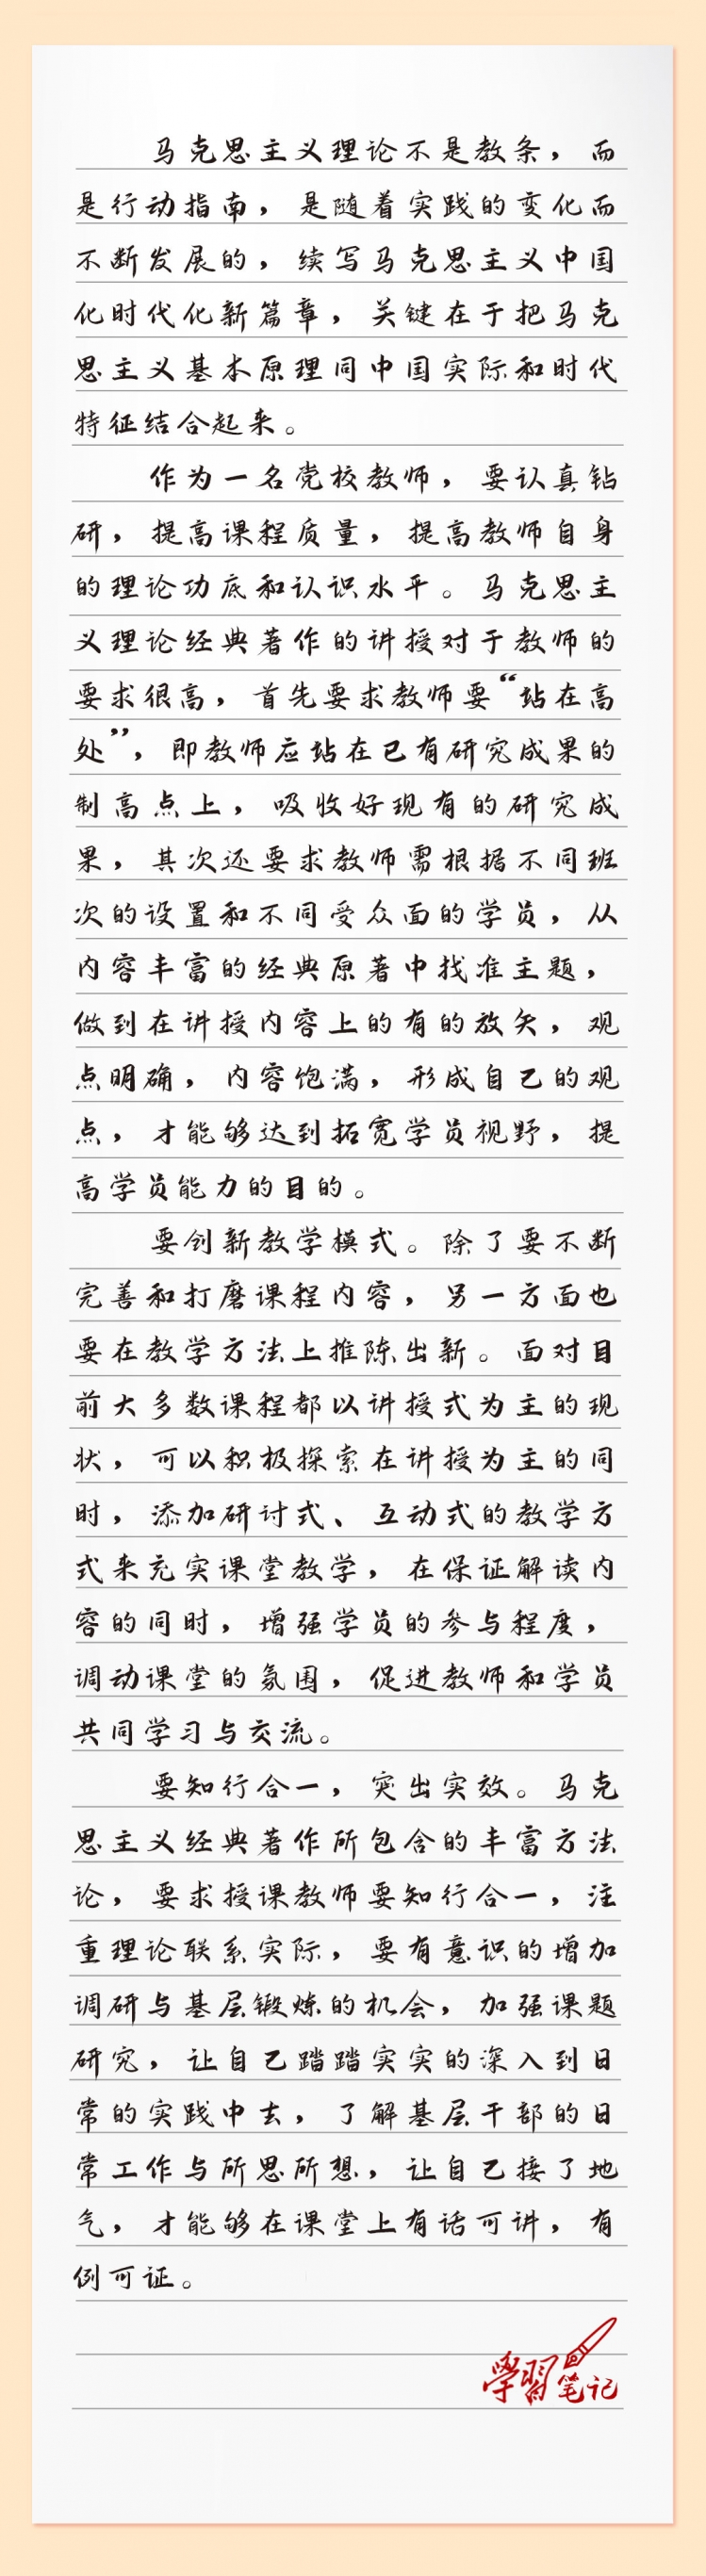 马克思主义理论不是教条，而
是行动指南，是随着实践的变化而
不断发展的，续写马克思主义中国
化时代化新篇章，关键在于把马克
思主义基本原理同中国实际和时代
特征结合起来。
作为一名党校教师，要认真钻
研，提高课程质量，提高教师自身
的理论功底和认识水平。马克思主
义理论经典著作的讲授对于教师的
要求很高，首先要求教师要“站在高
处”，即教师应站在已有研究成果的
制高点上，吸收好现有的研究成
果，其次还要求教师需根据不同班
次的设置和不同受众面的学员，从
内容丰富的经典原著中找准主题，
做到在讲授内容上的有的放矢，观
点明确，内容饱满，形成自己的观
点，才能够达到拓宽学员视野，提
高学员能力的目的。
要创新教学模式。除了要不断
完善和打磨课程内容，另一方面也
要在教学方法上推陈出新。面对目
前大多数课程都以讲授式为主的现
状，可以积极探索在讲授为主的同
时，添加研讨式、互动式的教学方
式来充实课堂教学，在保证解读内
容的同时，增强学员的参与程度，
调动课堂的氛围，促进教师和学员
共同学习与交流。
要知行合一，突出实效。马克
思主义经典著作所包含的丰富方法
论，要求授课教师要知行合一，注
重理论联系实际，要有意识的增加
调研与基层锻炼的机会，加强课题
研究，让自己踏踏实实的深入到日
常的实践中去，了解基层干部的日
常工作与所思所想，让自己接了地
气，才能够在课堂上有话可讲，有
例可证。
學習笔记